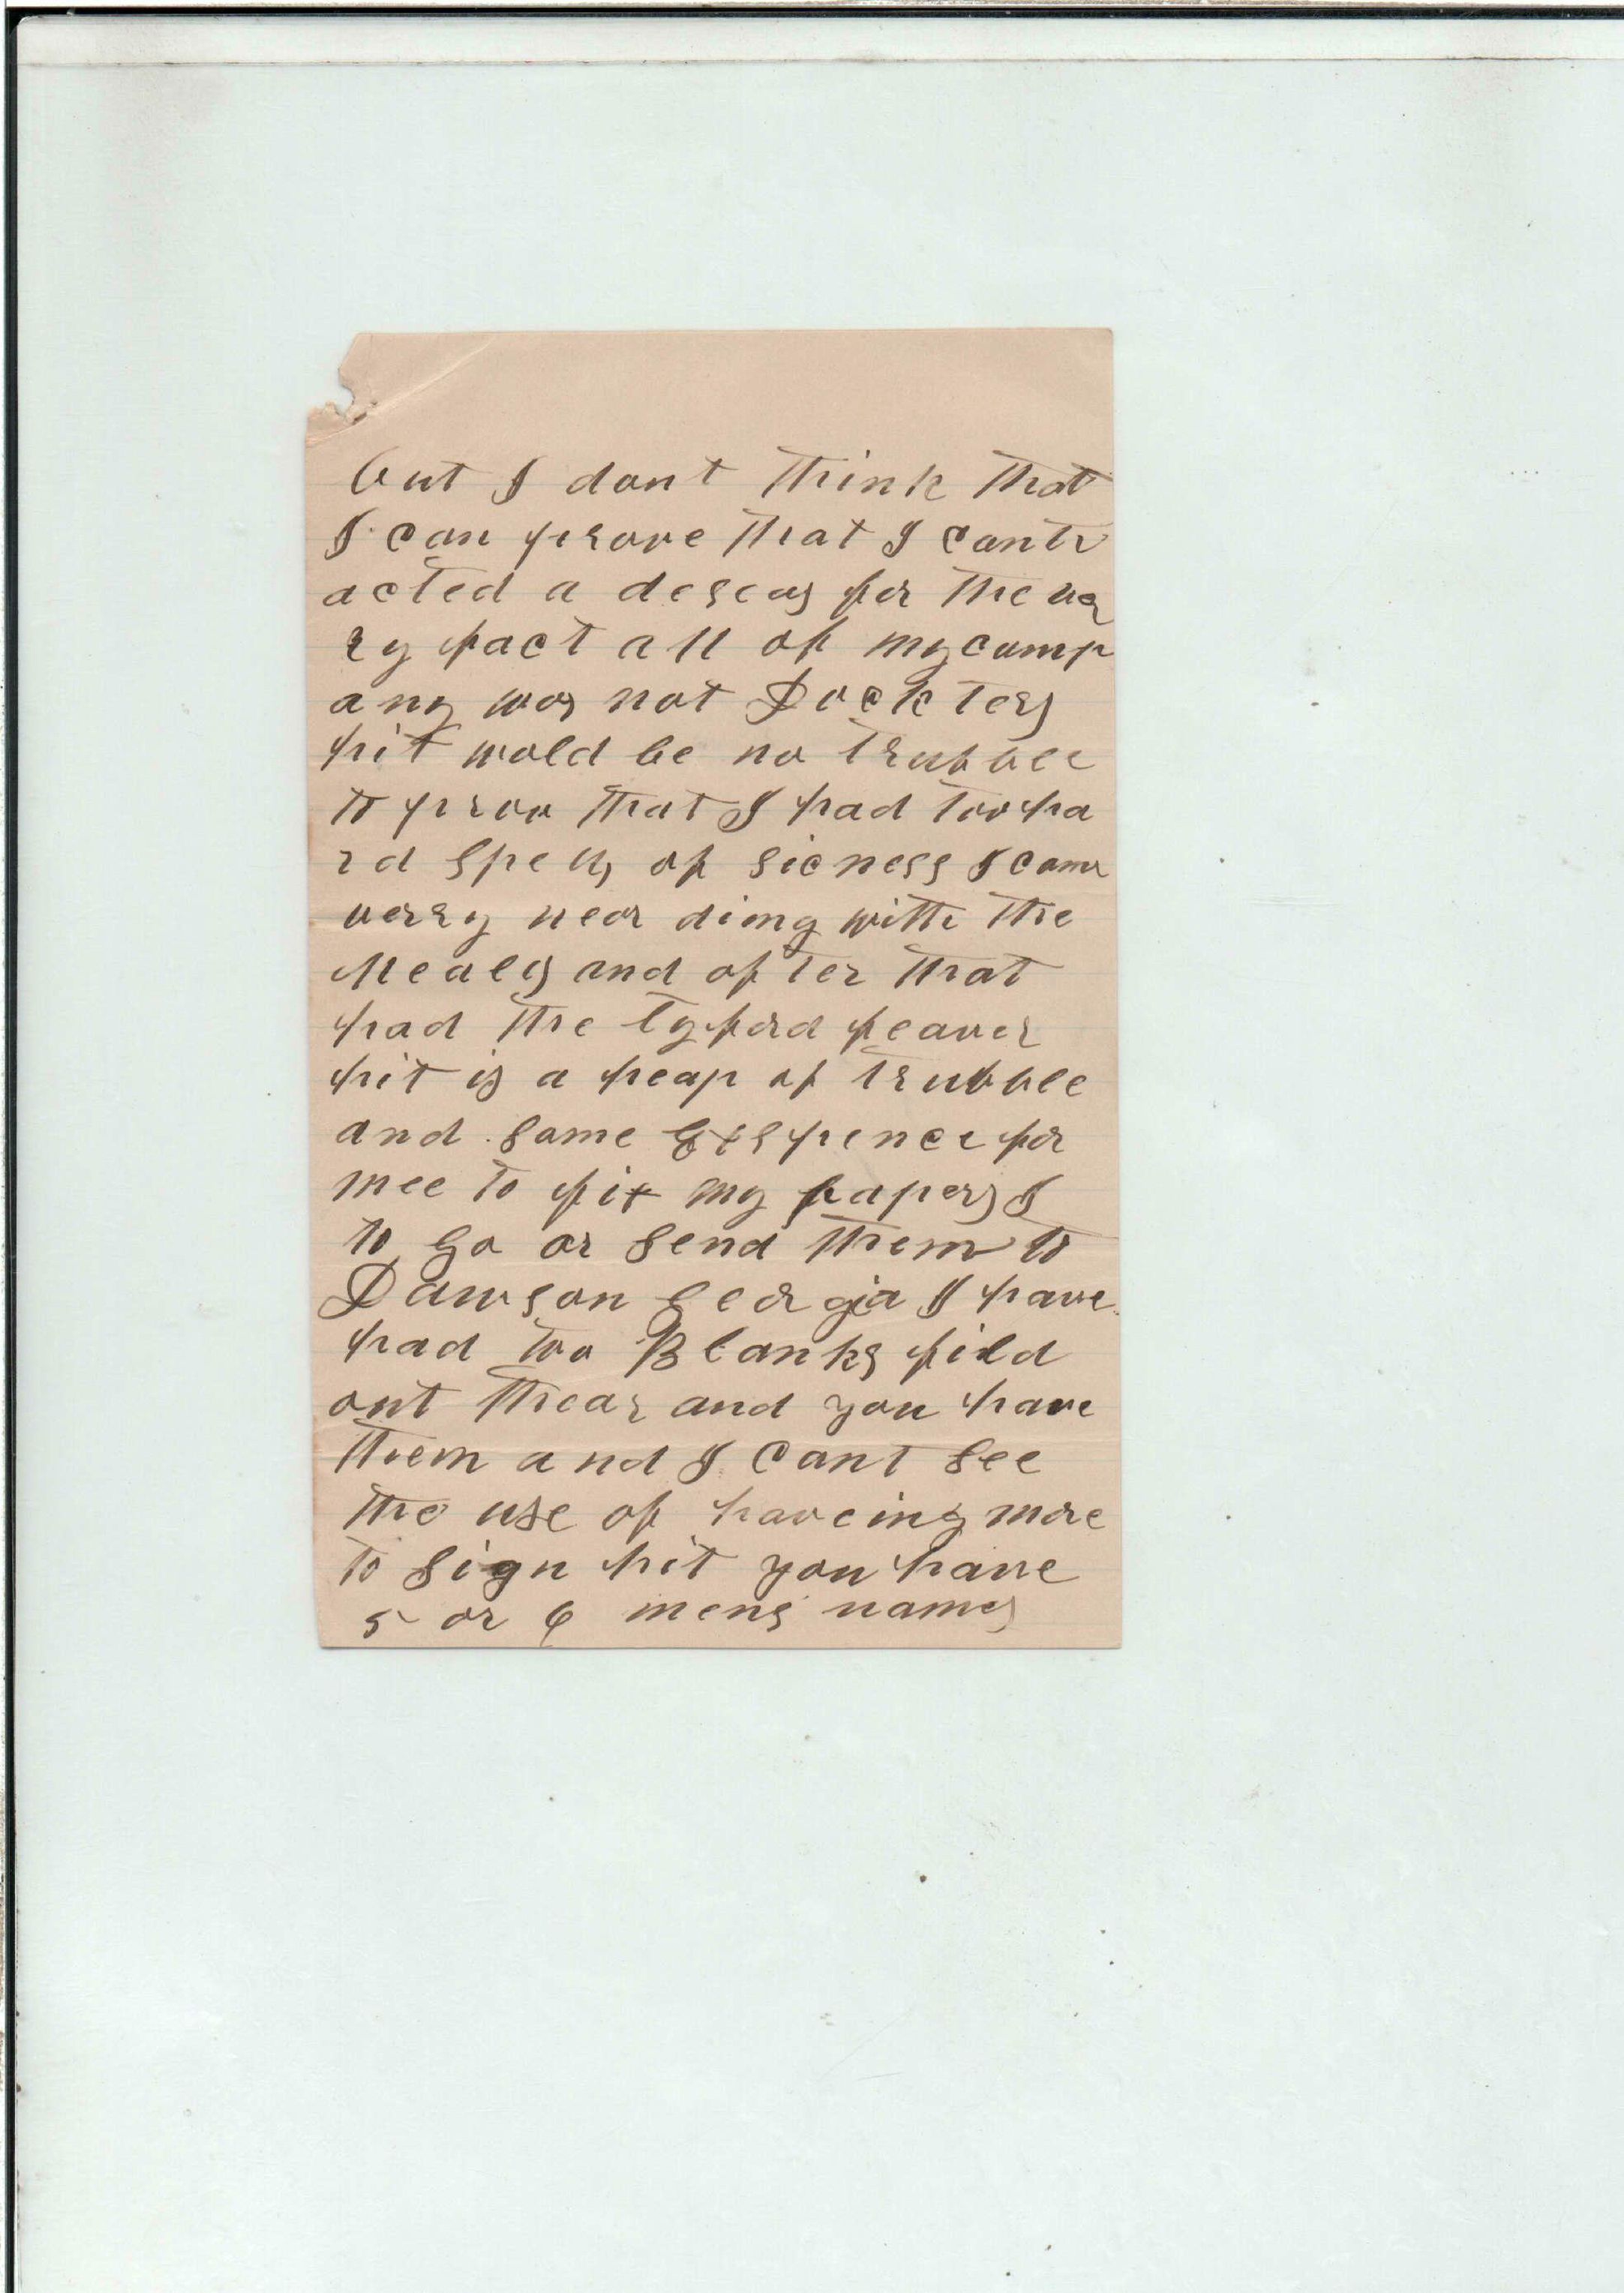 but I dont think that
I can prove that I contr
acted a deseas for the ve
ry fact all of my comp
any was not Dockters
hit wold be no trubble
to prov that I had too ha
rd spells of sicness I came
verry near diing with the
Meals and after that
had the tyford feaver
hit is a heap of trubble
and some Exspence for
mee to fix my papers I
to go or send them to
Dawson Georgia I have
had two Blanks fild
out thear and you have
them and I cant see
the use of haveing more
to sign hit you have
5 or 6 mens names